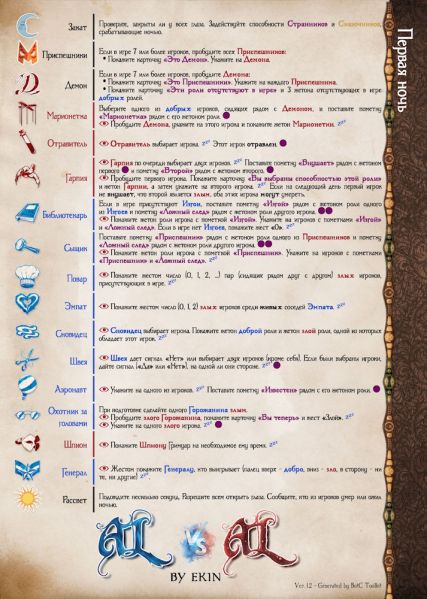 Первая ночь
Закат
Проверьте, закрыты ли у всех глаза. Задействуйте способности Странников и Сказочников,
срабатывающие ночью.
Приспешники
Если в игре 7 или более игроков, пробудите всех Приспешников:
• Покажите карточку «Это Демон». Укажите на Демона.
Демон
Если в игре 7 или более игроков, пробудите Демона:
• Покажите карточку «Это Приспешники». Укажите на каждого Приспешника.
• Покажите карточку «Эти роли отсутствуют в игре» и 3 жетона отсутствующих в игре
добрых ролей.
Марионетка
Выберите одного из добрых игроков, сидящих рядом с Демоном, и поставьте пометку
«Марионетка» рядом с его жетоном роли.
Пробудите Демона, укажите на этого игрока и покажите жетон Марионетки.
Отравитель
Отравитель выбирает игрока. Этот игрок отравлен.
Гарпия
Гарпия по очереди выбирает двух игроков. Поставьте пометку «Внушает» рядом с жетоном
первого и пометку «Второй» рядом с жетоном второго.
Пробудите первого игрока. Покажите карточку «Вы выбраны способностью этой роли»
и жетон Гарпии, а затем укажите на второго игрока. Если на следующий день первый игрок
не внушает, что второй является злым, оба этих игрока могут умереть.
Библиотекарь
Если в игре присутствуют Изгои, поставьте пометку «Изгой» рядом с жетоном роли одного
из Изгоев и пометку «Ложный след» рядом с жетоном роли другого игрока.
Покажите жетон роли игрока с пометкой «Изгой». Укажите на игроков с пометками «Изгой»
и «Ложный след». Если в игре нет Изгоев, покажите жест «0».
Сыщик
Поставьте пометку «Приспешник» рядом с жетоном роли одного из Приспешников и пометку
«Ложный след» рядом с жетоном роли другого игрока.
Покажите жетон роли игрока с пометкой «Приспешник». Укажите на игроков с пометками
«Приспешник» и «Ложный след».
Повар
Покажите жестом число (0, 1, 2, ...) пар (сидящих рядом друг с другом) злых игроков,
присутствующих в игре.
Эмпат
Покажите жестом число (0, 1, 2) злых игроков среди живых соседей Эмпата.
Сновидец
Сновидец выбирает игрока. Покажите жетон доброй роли и жетон злой роли, одной из которых
обладает этот игрок.
Швея
Швея даёт сигнал «Нет» или выбирает двух игроков (кроме себя). Если были выбраны игроки,
дайте сигнал («Да» или «Нет»), на одной ли они стороне.
Аэронавт
Укажите на одного из игроков. Поставьте пометку «Известен» рядом с его жетоном роли.
Охотник за
головами
При подготовке сделайте одного Горожанина злым.
Пробудите злого Горожанина, покажите карточку «Вы теперь» и жест «Злой».
Укажите на одного злого игрока.
Шпион
Покажите Шпиону Гримуар на необходимое ему время.
Генерал
Жестом покажите Генералу, кто выигрывает (палец вверх - добро, вниз - зло, в сторону - ни
те, ни другие).
Рассвет
Подождите несколько секунд. Разрешите всем открыть глаза. Сообщите, кто из игроков умер или ожил
ночью.
AL VS AL
BY EKIN
Ver 1.2 - Generated by BotC Toolkit